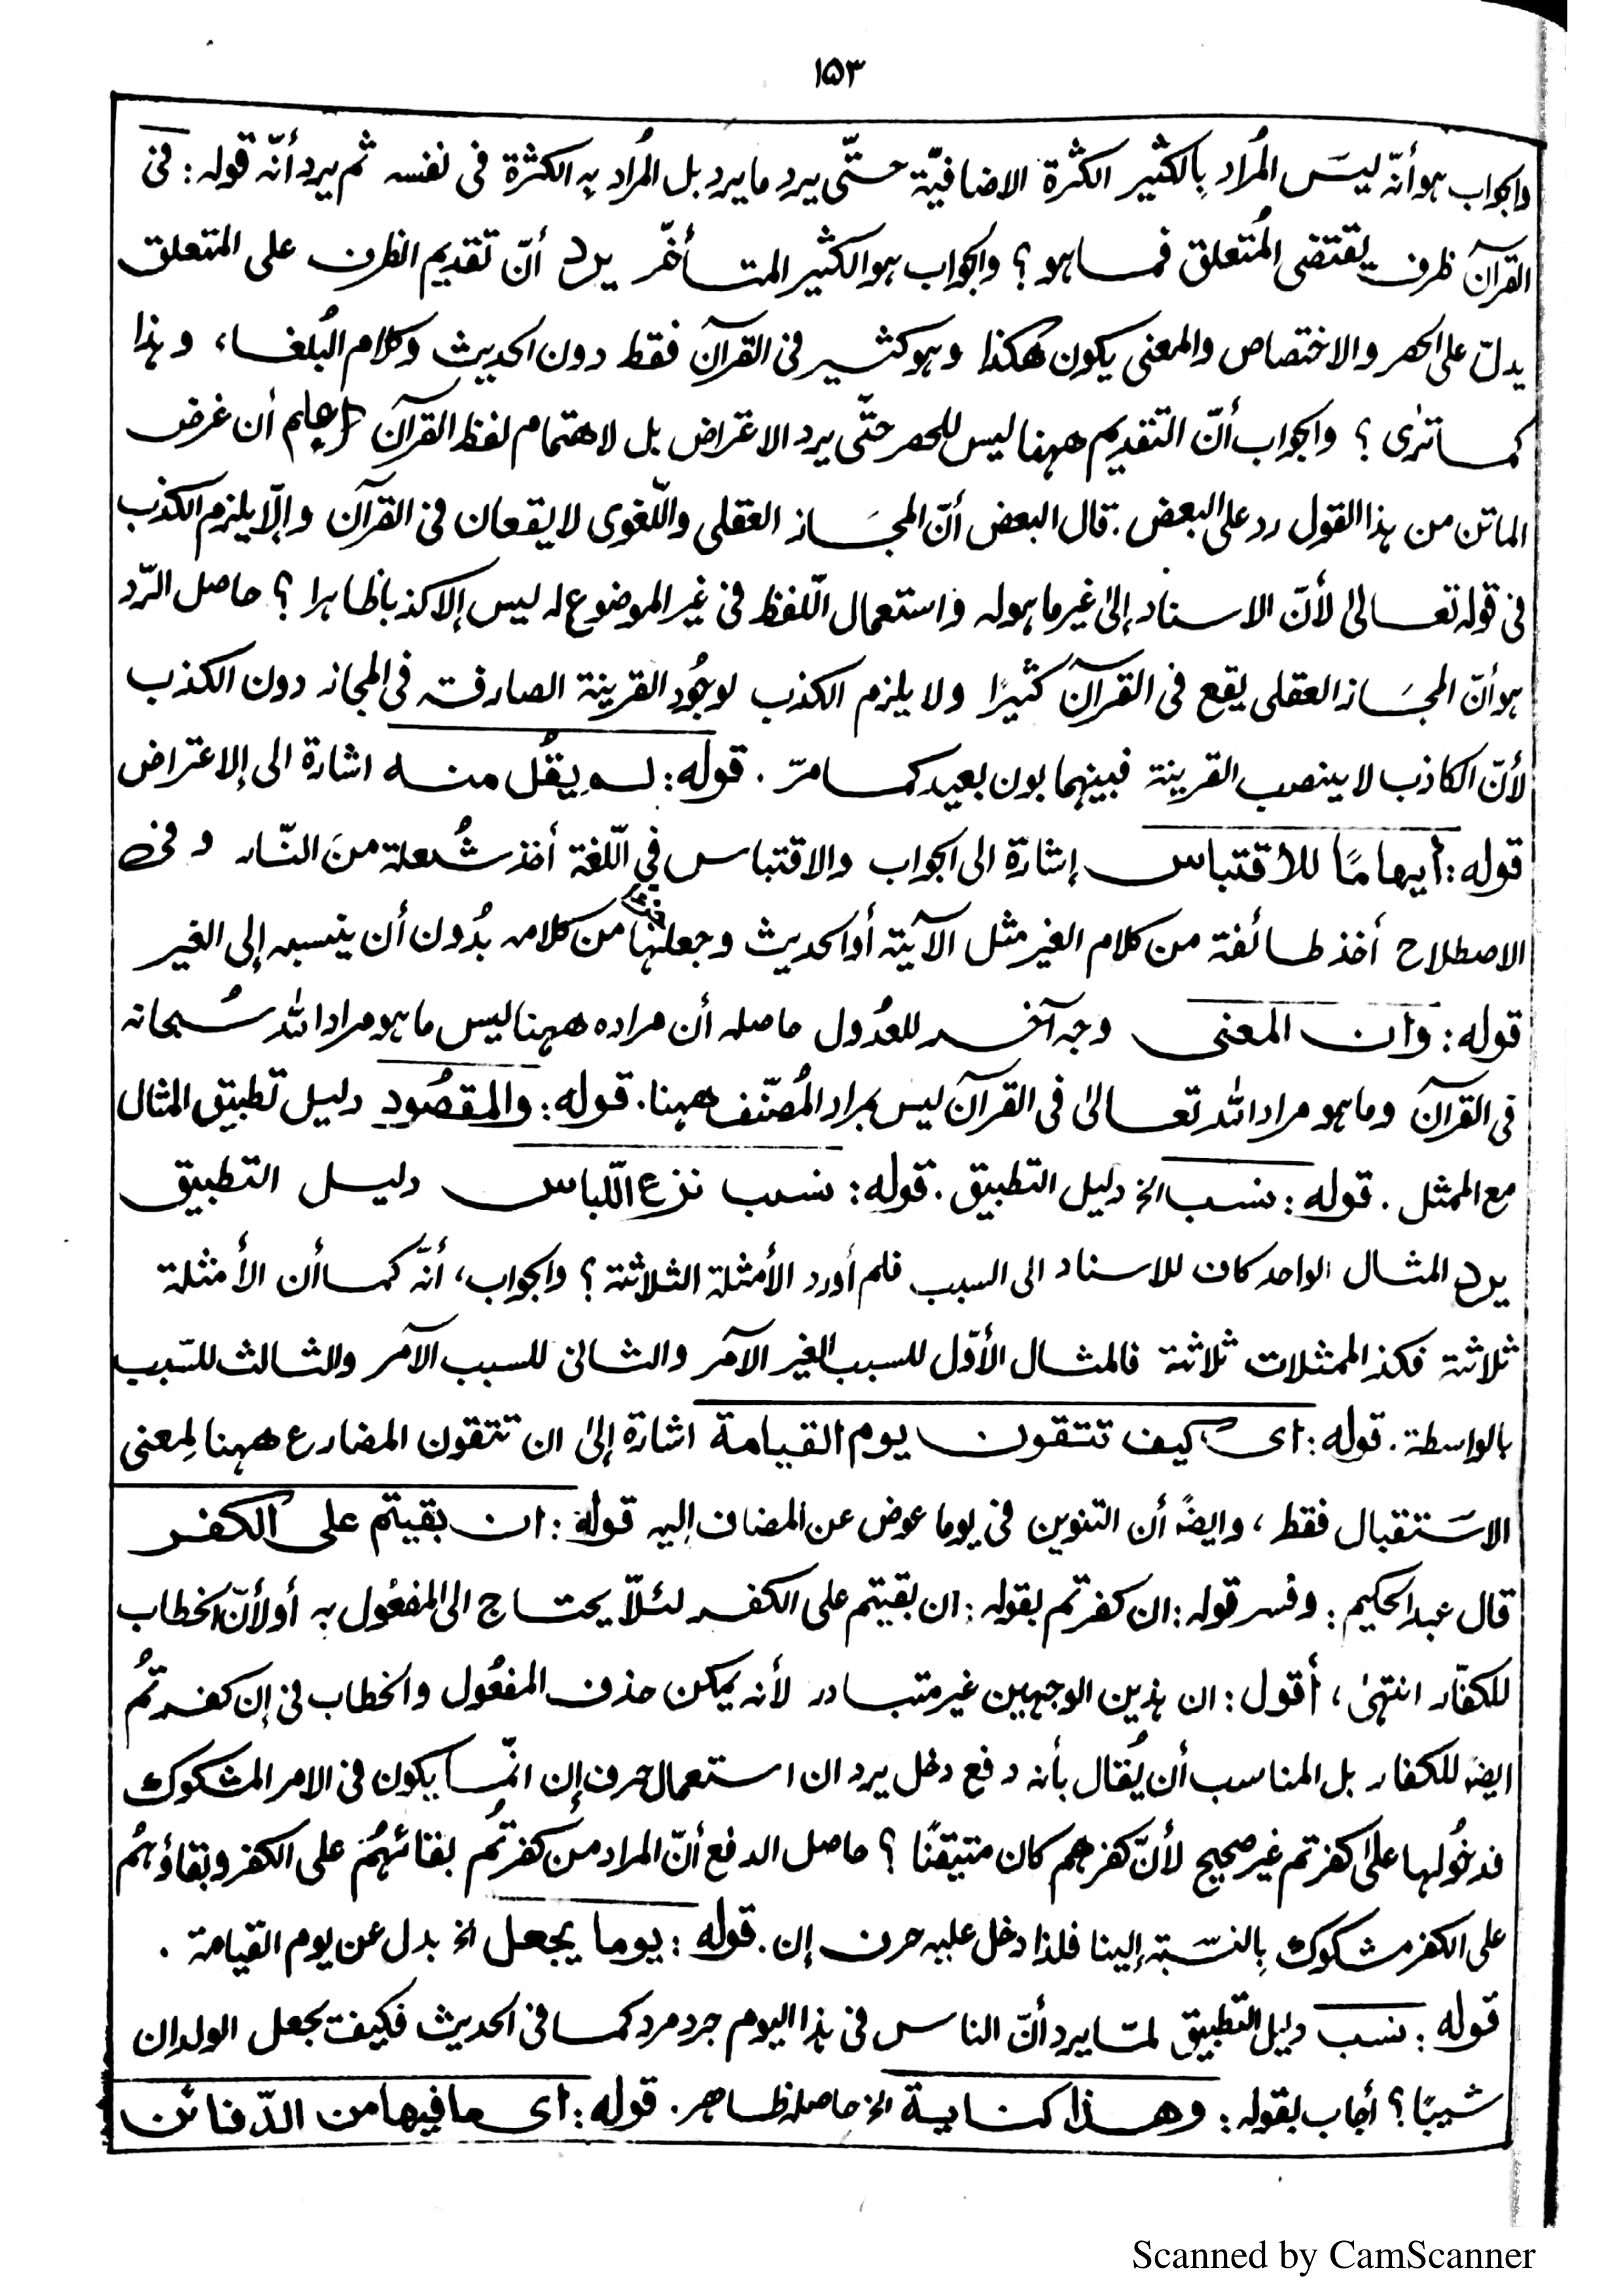 ١٥٣
والجواب هو أنّه ليسَ المُراد بِالكثير الكثرة الاضافيّة حتّى يرد ما يرد بل المُراد به الكثرة فى نفسه ثم يرد أنّه قوله: فى
القرآن ظرف يقتضى المُتعلق فما هو؟ والجواب هو الكثير المتأخّر يرد أنّ تقديم الظرف على المتعلق
يدل على الحصر والاختصاص والمعنى يكون هكذا وهو كثير فى القرآن فقط دون الحديث وكلام البُلغاء، وهذا
كما ترٰى؟ والجواب أنّ التقديم ههنا ليس للحصر حتّى يرد الاعتراض بل لاهتمام لفظ القرآن إعلم أن غرض
الماتن من هذا القول رد على البعض. قال البعض أنّ المجَاز العقلى واللّغوى لا يقعان فى القرآن وإلّا يلزم الكذب
فى قوله تعالىٰ لأنّ الاسناد إلىٰ غير ما هو له واستعمال اللّفظ فى غير الموضوع له ليس إلا كذبا ظاهرا؟ حاصل الرّد
هو أنّ المجَاز العقلى يقع فى القرآن كثيرًا ولا يلزم الكذب لوجُود القرينة الصارفة فى المجاز دون الكذب
لأنّ الكاذب لا ينصب القرينة فبينهما بون بعيد كما مرّ. قوله: لم يقُل منه اشارة الى الاعتراض
قوله: أيهامًا للأقتباس إشارة الى الجواب والاقتباس في اللّغة أخذ شُعلة منَ النّار وفى
الاصطلاح أخذ طائفة من كلام الغير مثل الآية أو الحديث وجعلها من كلامه بدُون أن ينسبه إلى الغير
قوله: وان المعنى وجه آخر للعدُول حاصله أن مراده ههنا ليس ما هو مراد الله سُبحانه
فى القرآن وما هو مراد الله تعالىٰ فى القرآن ليس بمراد المُصنّف ههنا. قوله: والمقصُود دليل تطبيق المثال
مع الممثل. قوله: نسب الخ دليل التطبيق. قوله: نسب نزع اللّباس دليل التطبيق
يرد المثال الواحد كان للاسناد الى السبب فلم أورد الأمثلة الثلاثة؟ والجواب، أنّه كما أن الأمثلة
ثلاثة فكذا الممثلات ثلاثة فالمثال الأوّل للسبب الغير الآمر والثانى للسبب الآمر والثالث للسّبب
بالواسطة. قوله: اى كيف تتقون يوم القيامة اشارة إلىٰ ان تتقون المضارع ههنا لِمعنى
الاسَتقبال فقط، وايضًا أن التنوين فى يوما عوض عن المضاف إليه قوله: ان بقيتم على الكفر
قال عبد الحكيم: وفسر قوله: ان كفرتم بقوله: ان بقيتم على الكفر لئلّا يحتاج الى المفعُول به أو لأنّ الخطاب
للكفّار انتهىٰ، أقول: ان هذين الوجهين غير متبادر لأنه يمكن حذف المفعُول والخطاب فى إن كفرتُم
ايضا للكفار بل المناسب أن يُقال بأنه دفع دخل يرد ان استعمال حرف إن انّما يكون فى الامر المشكوك
فدخُولها على كفرتم غير صحيح لأنّ كفرهم كان متيقنًا؟ حاصل الدفع أنّ المراد من كفرتُم بقائهُم على الكفر وبقاؤهُم
على الكفر مشكوك بِالنسّبة إلينا فلذا دخل عليه حرف إن. قوله: يوما يجعل الخ بدل عن يوم القيامة.
قوله: نسب دليل التطبيق لمّا يرد أنّ الناس فى هذا اليوم جرد مرد كما فى الحديث فكيف يجعل الولدان
شيبًا؟ أجاب بقوله: وهذا كناية الخ حاصله ظاهر. قوله: اى ما فيها من الدّفائن
Scanned by CamScanner